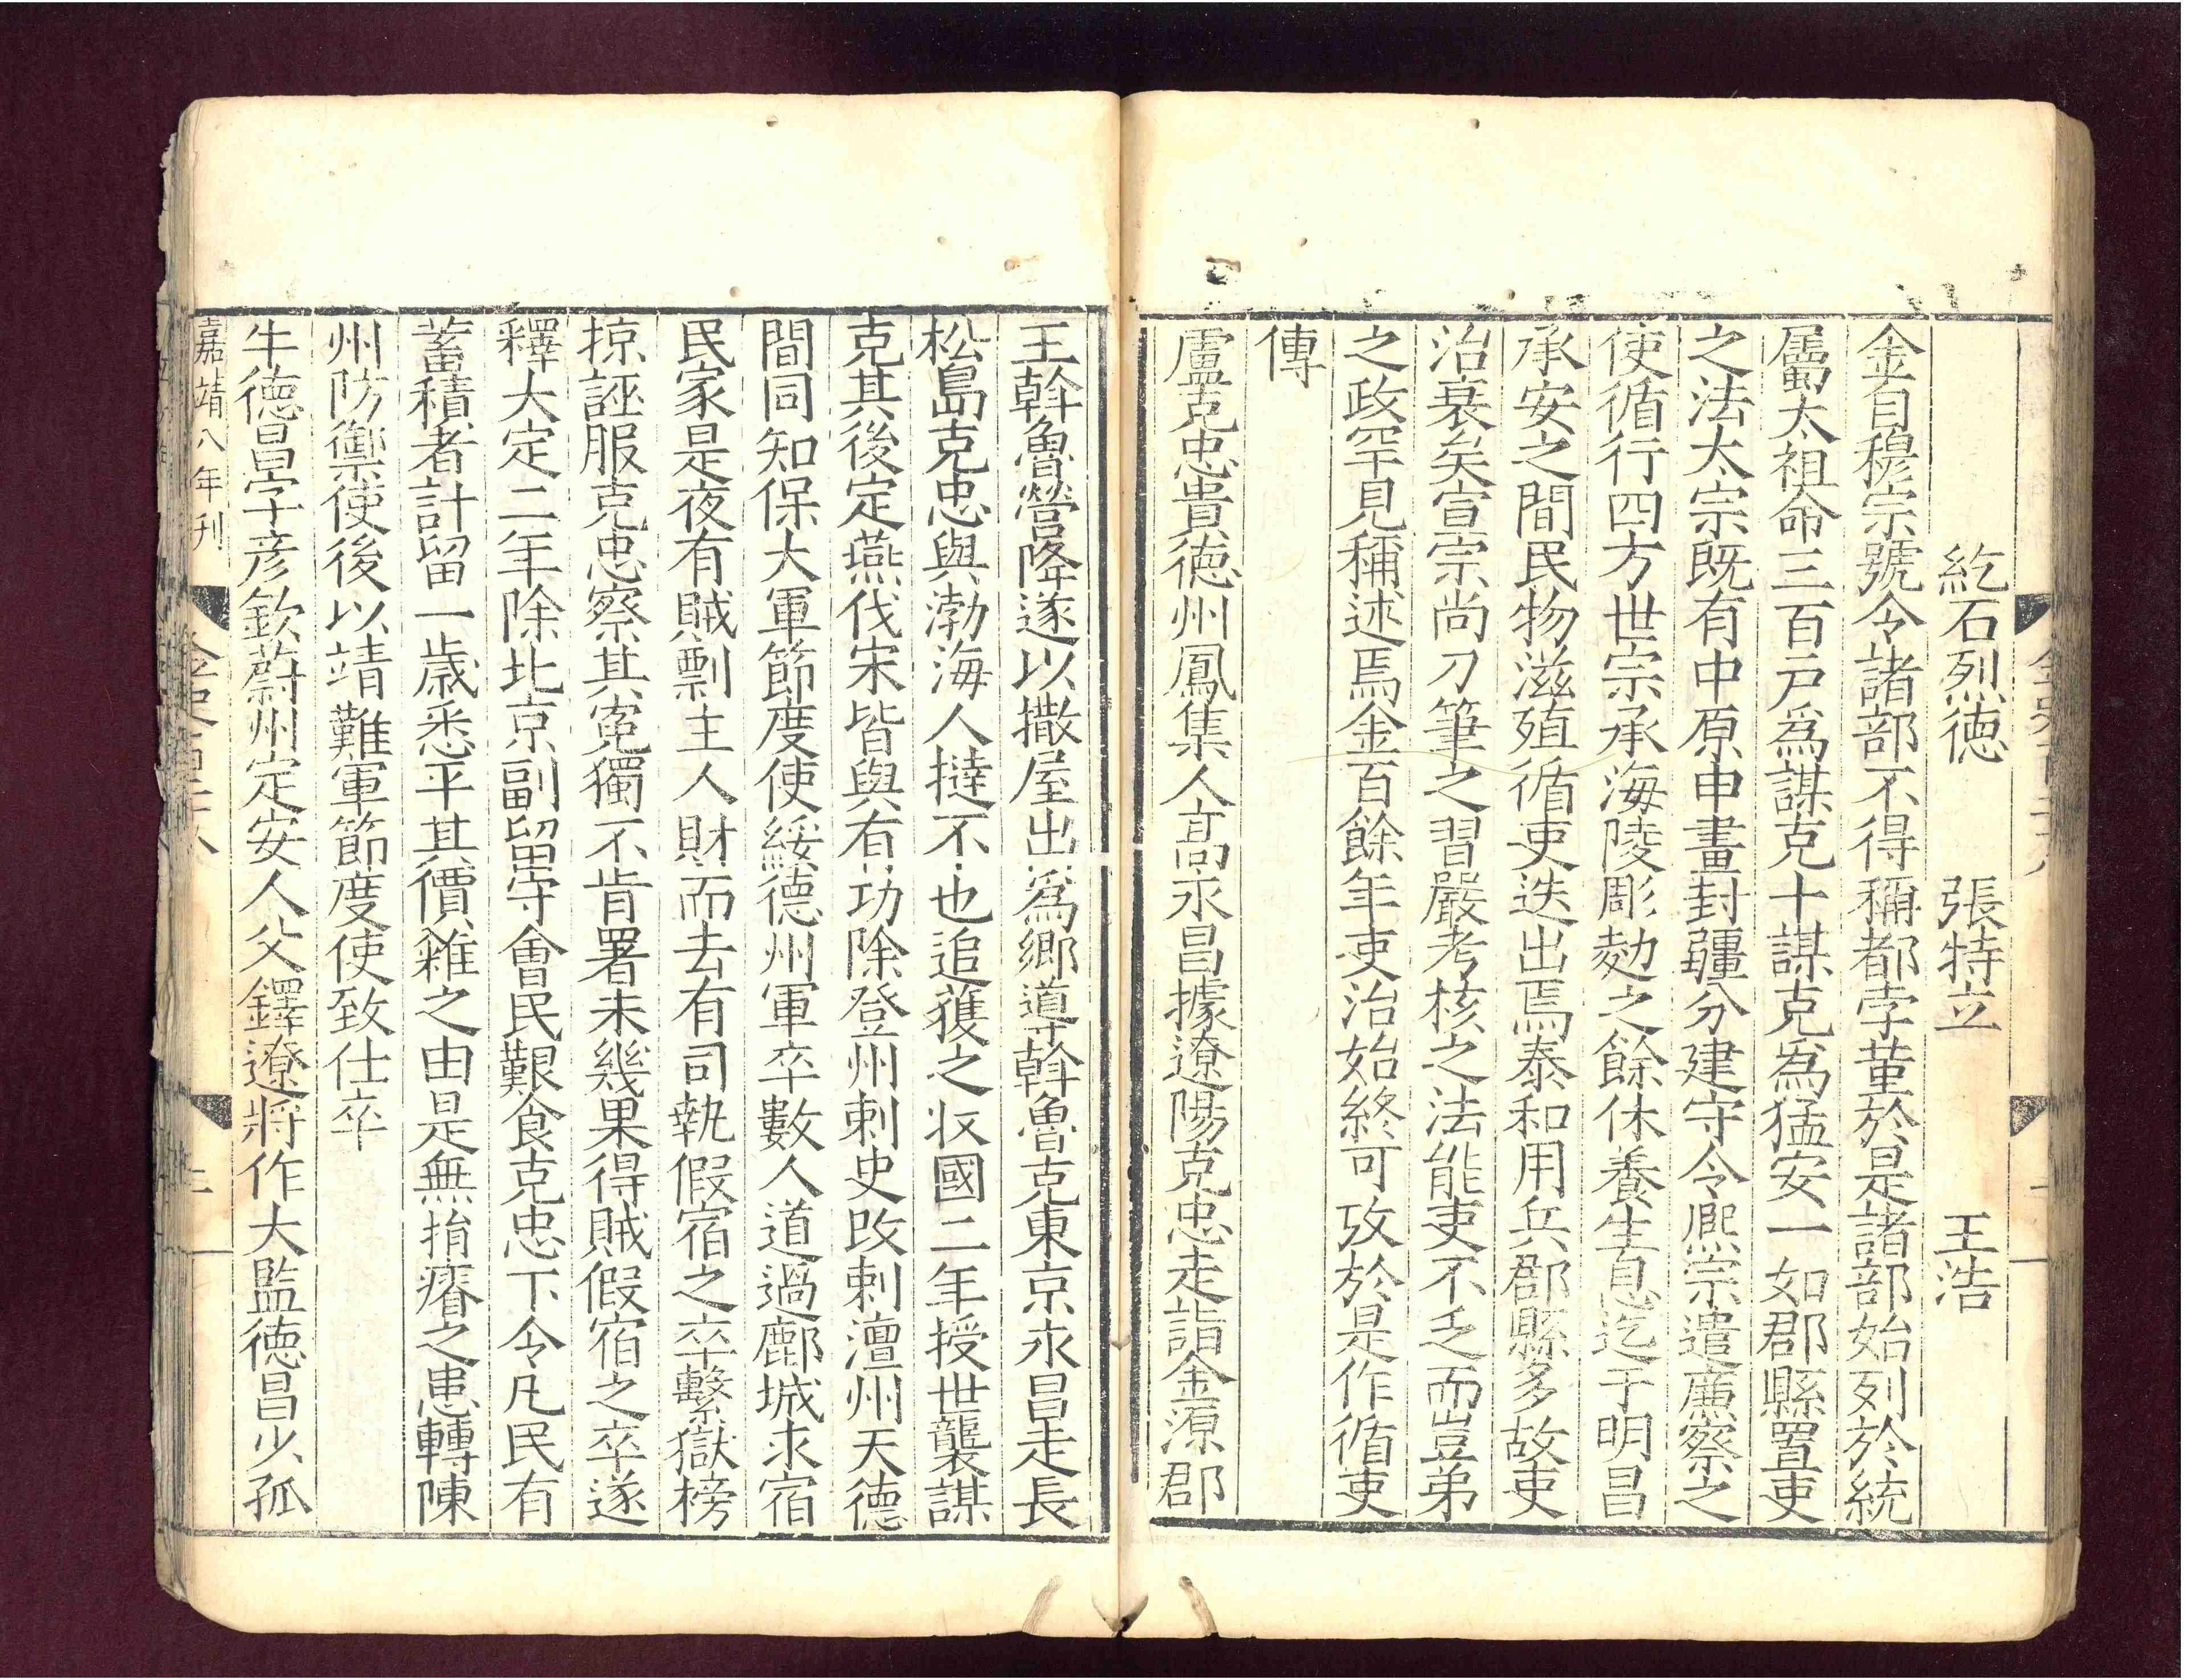 紇石烈德　張特立　王浩
金自穆宗號令諸部不得稱都孛菫於是諸部始列於統
屬太祖命三百戶爲謀克十謀克爲猛安一如郡縣置吏
之法太宗既有中原申畫封疆分建守令熙宗遣廉察之
使循行四方世宗承海陵彫劾之餘休養生息迄于明昌
承安之間民物滋殖循吏迭出焉泰和用兵郡縣多故吏
治衰矣宣宗尚刀筆之習嚴考核之法能吏不乏而豈弟
之政罕見稱述焉金百餘年吏治始終可攷於是作循吏
傳
盧克忠貴德州鳳集人高永昌據遼陽克忠走詣金源郡
王斡魯營降遂以撒屋出爲鄉導斡魯克東京永昌走長
松島克忠與渤海人撻不也追獲之收國二年授世襲謀
克其後定燕伐宋皆與有功除登州刺史改刺澶州天德
間同知保大軍節度使綏德州軍卒數人道過鄜城求宿
民家是夜有賊剽主人財而去有司執假宿之卒繫獄榜
掠誣服克忠察其冤獨不肯署未幾果得賊假宿之卒遂
釋大定二年除北京副留守會民艱食克忠下令凡民有
蓄積者計留一歲悉平其價糴之由是無捐瘠之患轉陳
州防禦使後以靖難軍節度使致仕卒
牛德昌字彥欽蔚州定安人父鐸遼將作大監德昌少孤
嘉靖八年刊